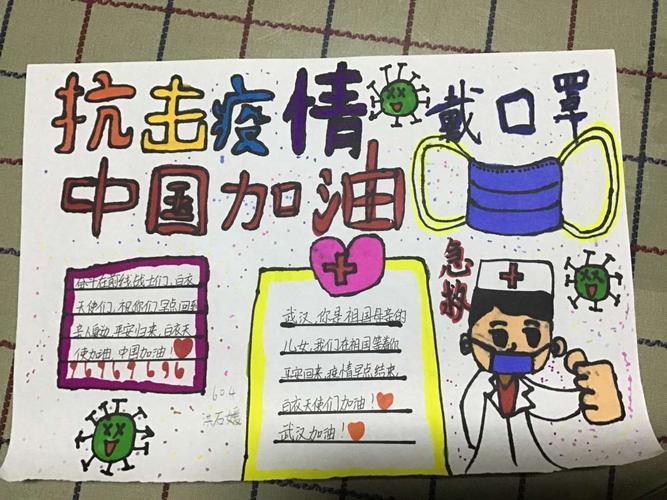 抗击疫情
中国加油
戴口罩
急救
天使们,祝你们早点回到
亲人身边,平安归来,白衣天
使加油,中国加油!
武汉,你是祖国母亲的
儿女,我们在祖国等着你
平安回来,疫情早点结束,
白衣天使们加油!
武汉加油!
604